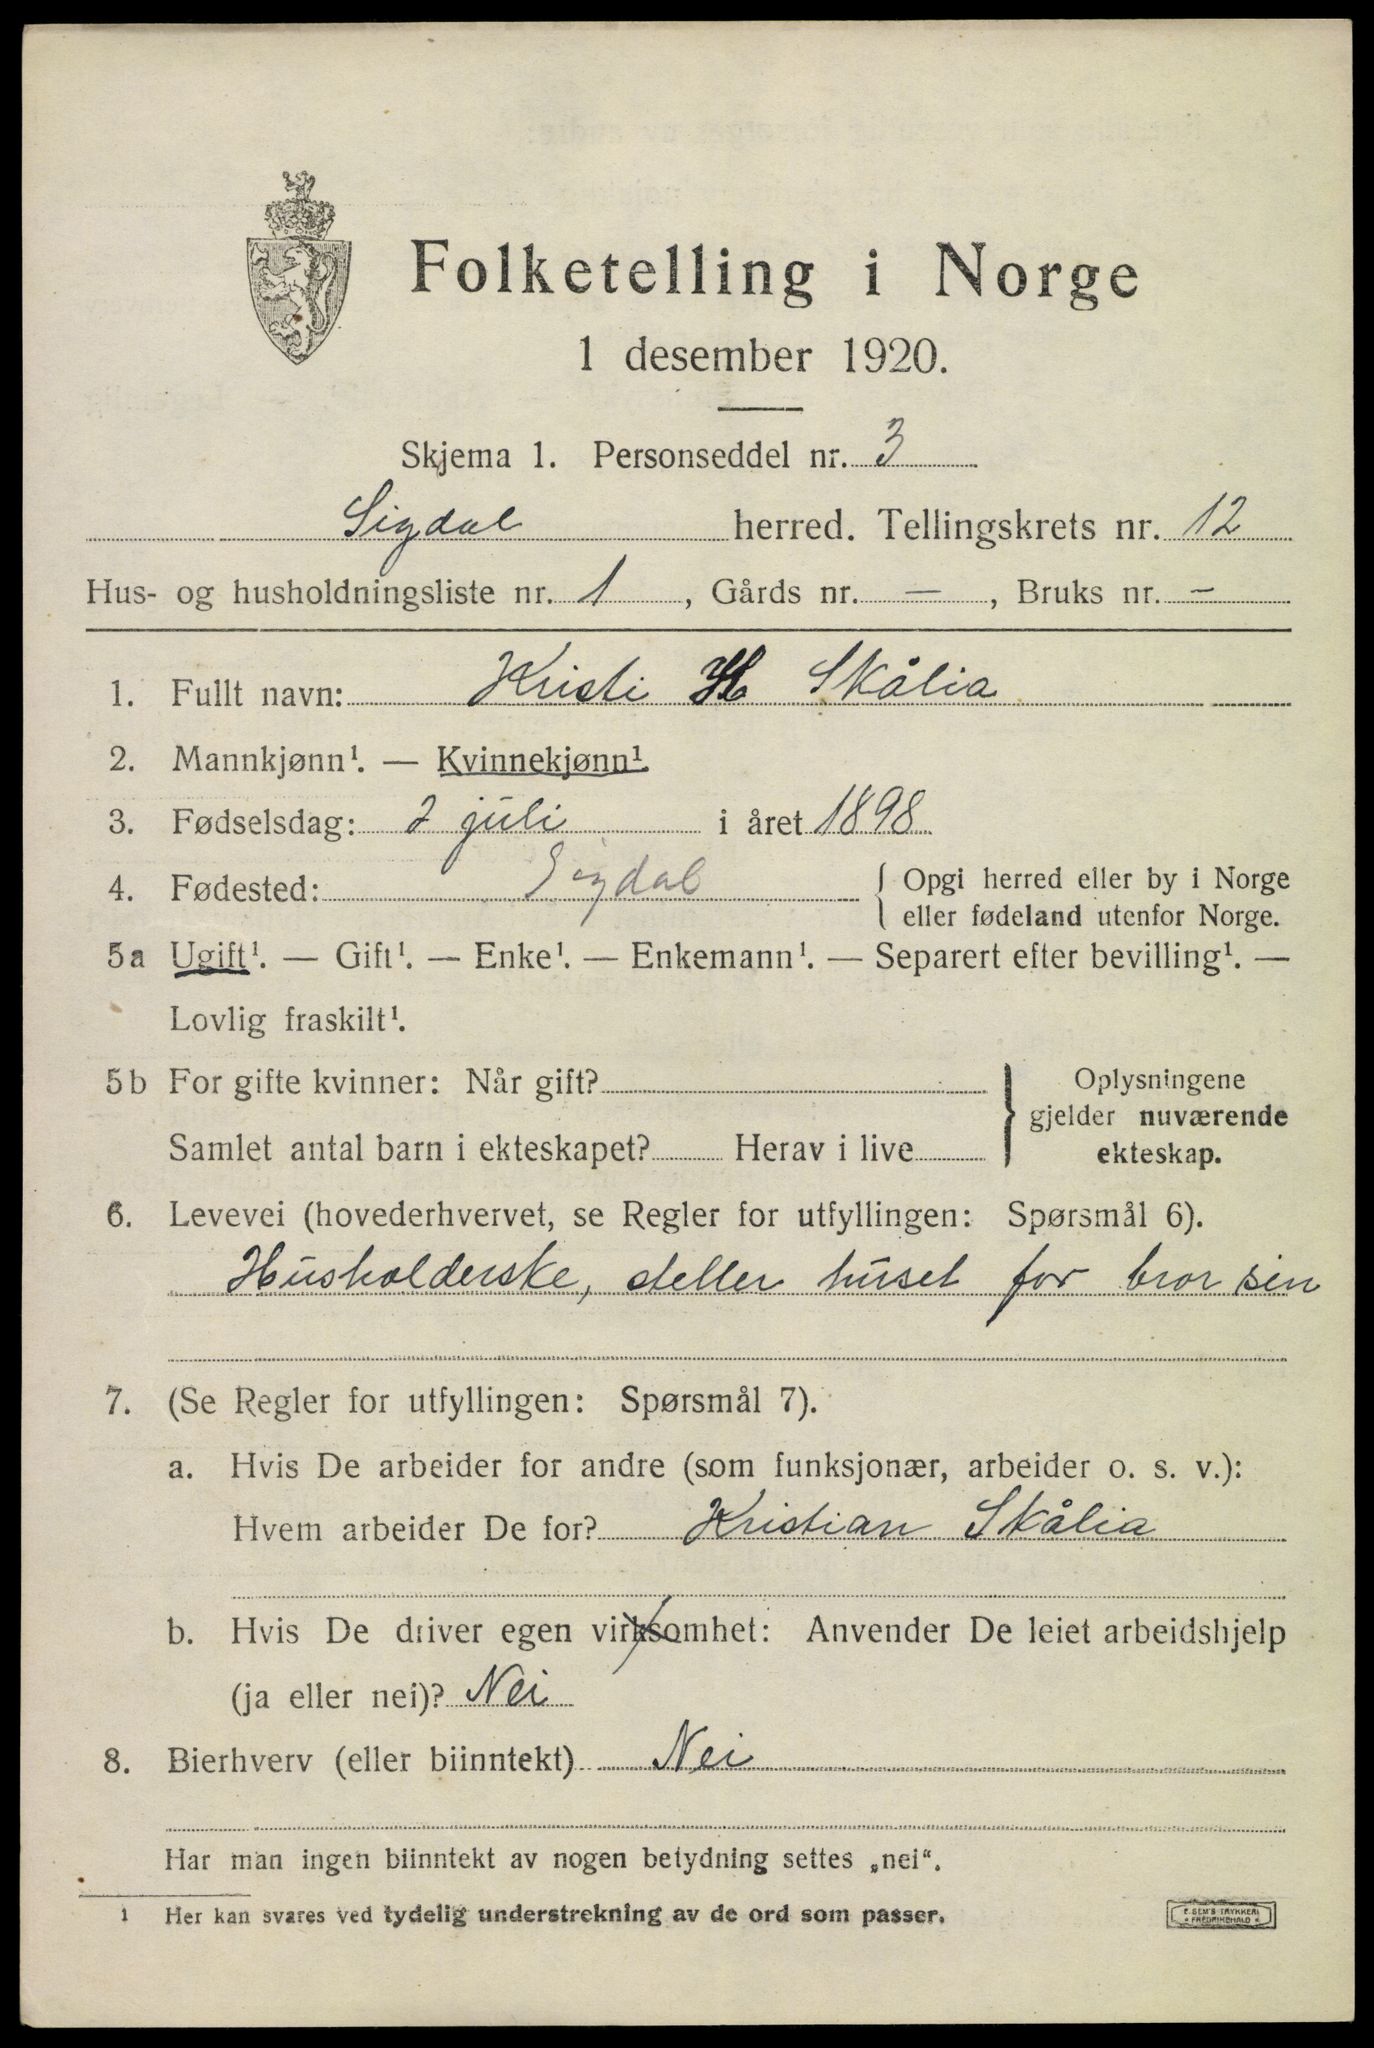 Folketelling i Norge
1 desember 1920.
Skjema 1. Personseddel nr. 3
Sigdal herred. Tellingskrets nr. 12
Hus- og husholdningsliste nr. 1, Gårds nr. —, Bruks nr. -
1. Fullt navn: Kristi H Skålia
2. Mannkjønn¹. — Kvinnekjønn¹
3. Fødselsdag: 2 juli i året 1898
4. Fødested: Sigdal { Opgi herred eller by i Norge
eller fødeland utenfor Norge.
5a Ugift¹. — Gift¹. — Enke¹. — Enkemann¹. — Separert efter bevilling¹. —
Lovlig fraskilt¹.
5b For gifte kvinner: Når gift? } Oplysningene
gjelder nuværende
Samlet antal barn i ekteskapet? Herav i live ekteskap.
6. Levevei (hovederhvervet, se Regler for utfyllingen: Spørsmål 6).
Husholderske, steller huset for bror sin
7. (Se Regler for utfyllingen: Spørsmål 7).
a. Hvis De arbeider for andre (som funksjonær, arbeider o. s. v.):
Hvem arbeider De for? Kristian Skålia
b. Hvis De driver egen virksomhet: Anvender De leiet arbeidshjelp
(ja eller nei)? Nei
8. Bierhverv (eller biinntekt) Nei
Har man ingen biinntekt av nogen betydning settes „nei“.
1 Her kan svares ved tydelig understrekning av de ord som passer.
E. SEM'S TRYKKERI
* FREDRIKSHALD *